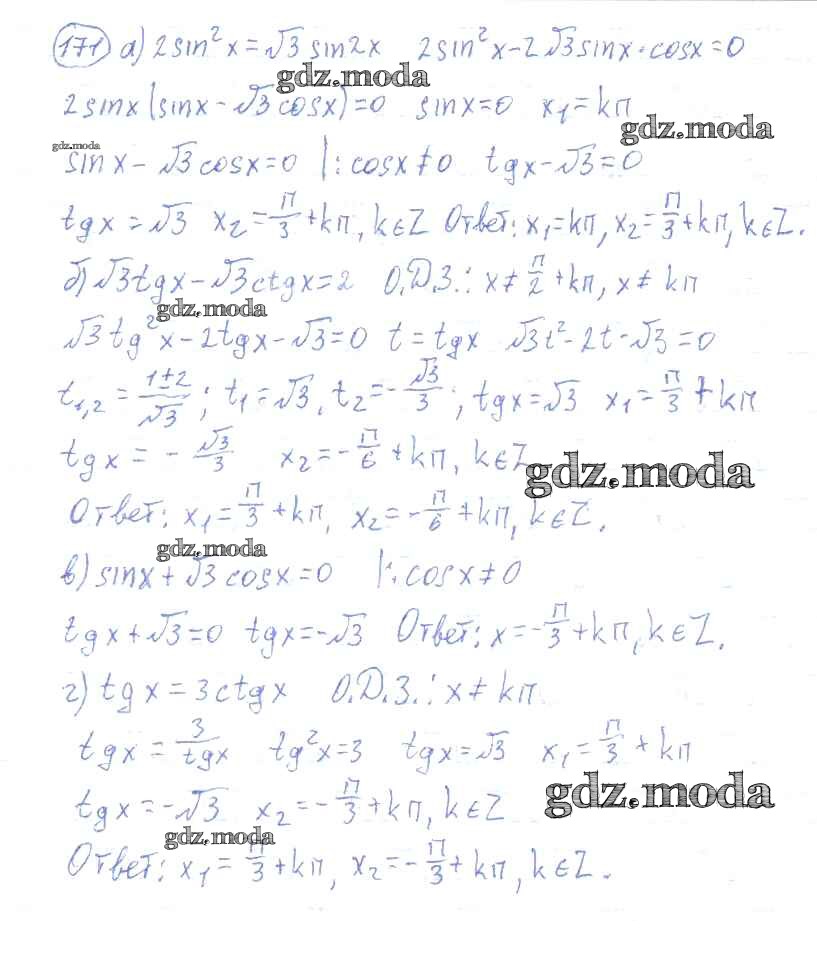 171) а) 2sin²x=√3 sin2x   2sin²x-2√3sinx·cosx=0
gdz.moda
2sinx(sinx-√3cosx)=0   sinx=0   x₁=kπ
gdz.moda
gdz.moda
sinx-√3cosx=0 |:cosx≠0   tgx-√3=0
tgx=√3   x₂=π/3+kπ, k∈Z   Ответ: x₁=kπ, x₂=π/3+kπ, k∈Z.
б) √3tgx-√3ctgx=2   О.Д.З.: x≠π/2+kπ, x≠kπ
gdz.moda
√3tg²x-2tgx-√3=0   t=tgx   √3t²-2t-√3=0
t₁,₂=(1±2)/√3; t₁=√3, t₂=-√3/3; tgx=√3   x₁=π/3+kπ
tgx=-√3/3   x₂=-π/6+kπ, k∈Z
gdz.moda
Ответ: x₁=π/3+kπ, x₂=-π/6+kπ, k∈Z.
gdz.moda
в) sinx+√3cosx=0   |:cosx≠0
tgx+√3=0   tgx=-√3   Ответ: x=-π/3+kπ, k∈Z.
г) tgx=3ctgx   О.Д.З.: x≠kπ
tgx=3/tgx   tg²x=3   tgx=√3   x₁=π/3+kπ
tgx=-√3   x₂=-π/3+kπ, k∈Z
gdz.moda
gdz.moda
Ответ: x₁=π/3+kπ, x₂=-π/3+kπ, k∈Z.